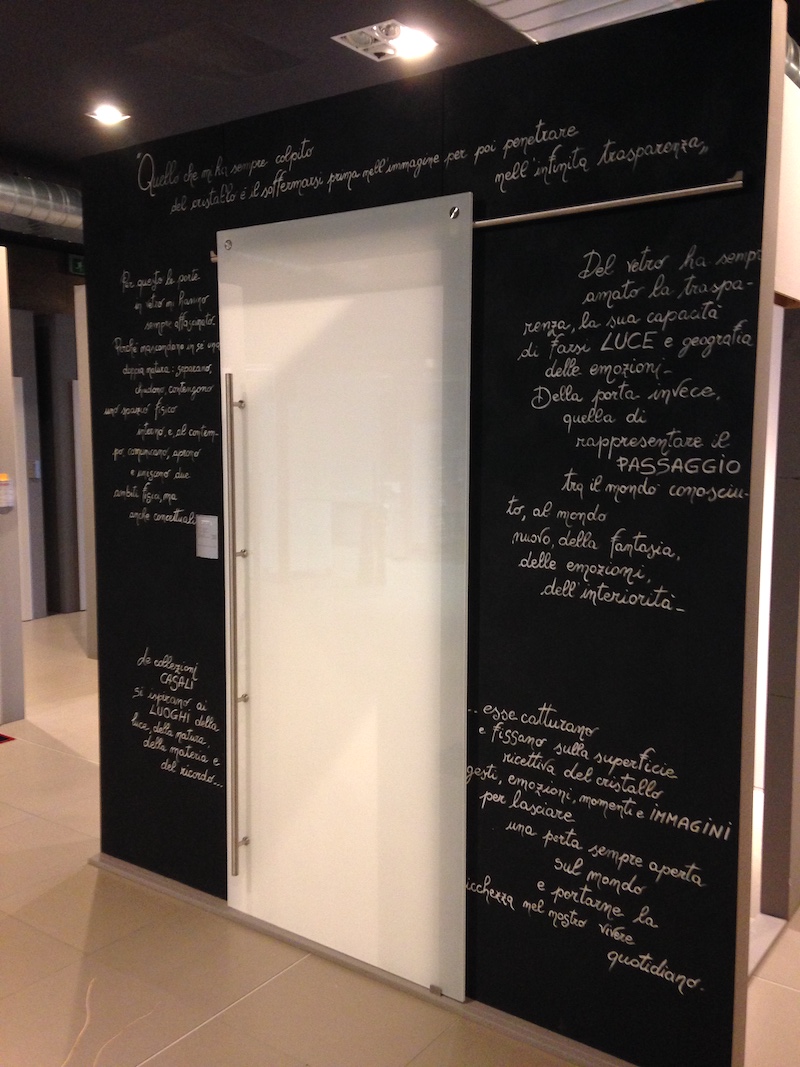 "Quello che mi ha sempre colpito
del cristallo é il soffermarsi prima nell'immagine per poi penetrare
nell'infinita trasparenza„
Per questo le porte
in vetro mi hanno
sempre affascinato.
Perché nascondono in sé una
doppia natura: separano,
chiudono, contengono
uno spazio fisico
interno, e, al contem-
po, comunicano, aprono
e uniscono due
ambiti fisici, ma
anche concettuali
Le collezioni
CASALI
si ispirano ai
LUOGHI della
luce, della natura,
della materia e
del ricordo...
Del vetro ha
amato la traspa-
renza, la sua capacità
di farsi LUCE e geografia
delle emozioni_
Della porta invece,
quella di
rappresentare il
PASSAGGIO
tra il mondo conosciu-
to, al mondo
nuovo, della fantasia,
delle emozioni,
dell'interiorità_
...esse catturano
e fissano sulla superficie
ricettiva del cristallo
gesti, emozioni, momenti e IMMAGINI
per lasciare
una porta sempre aperta
sul mondo
e portarne la
icchezza nel nostro vivere
quotidiano.